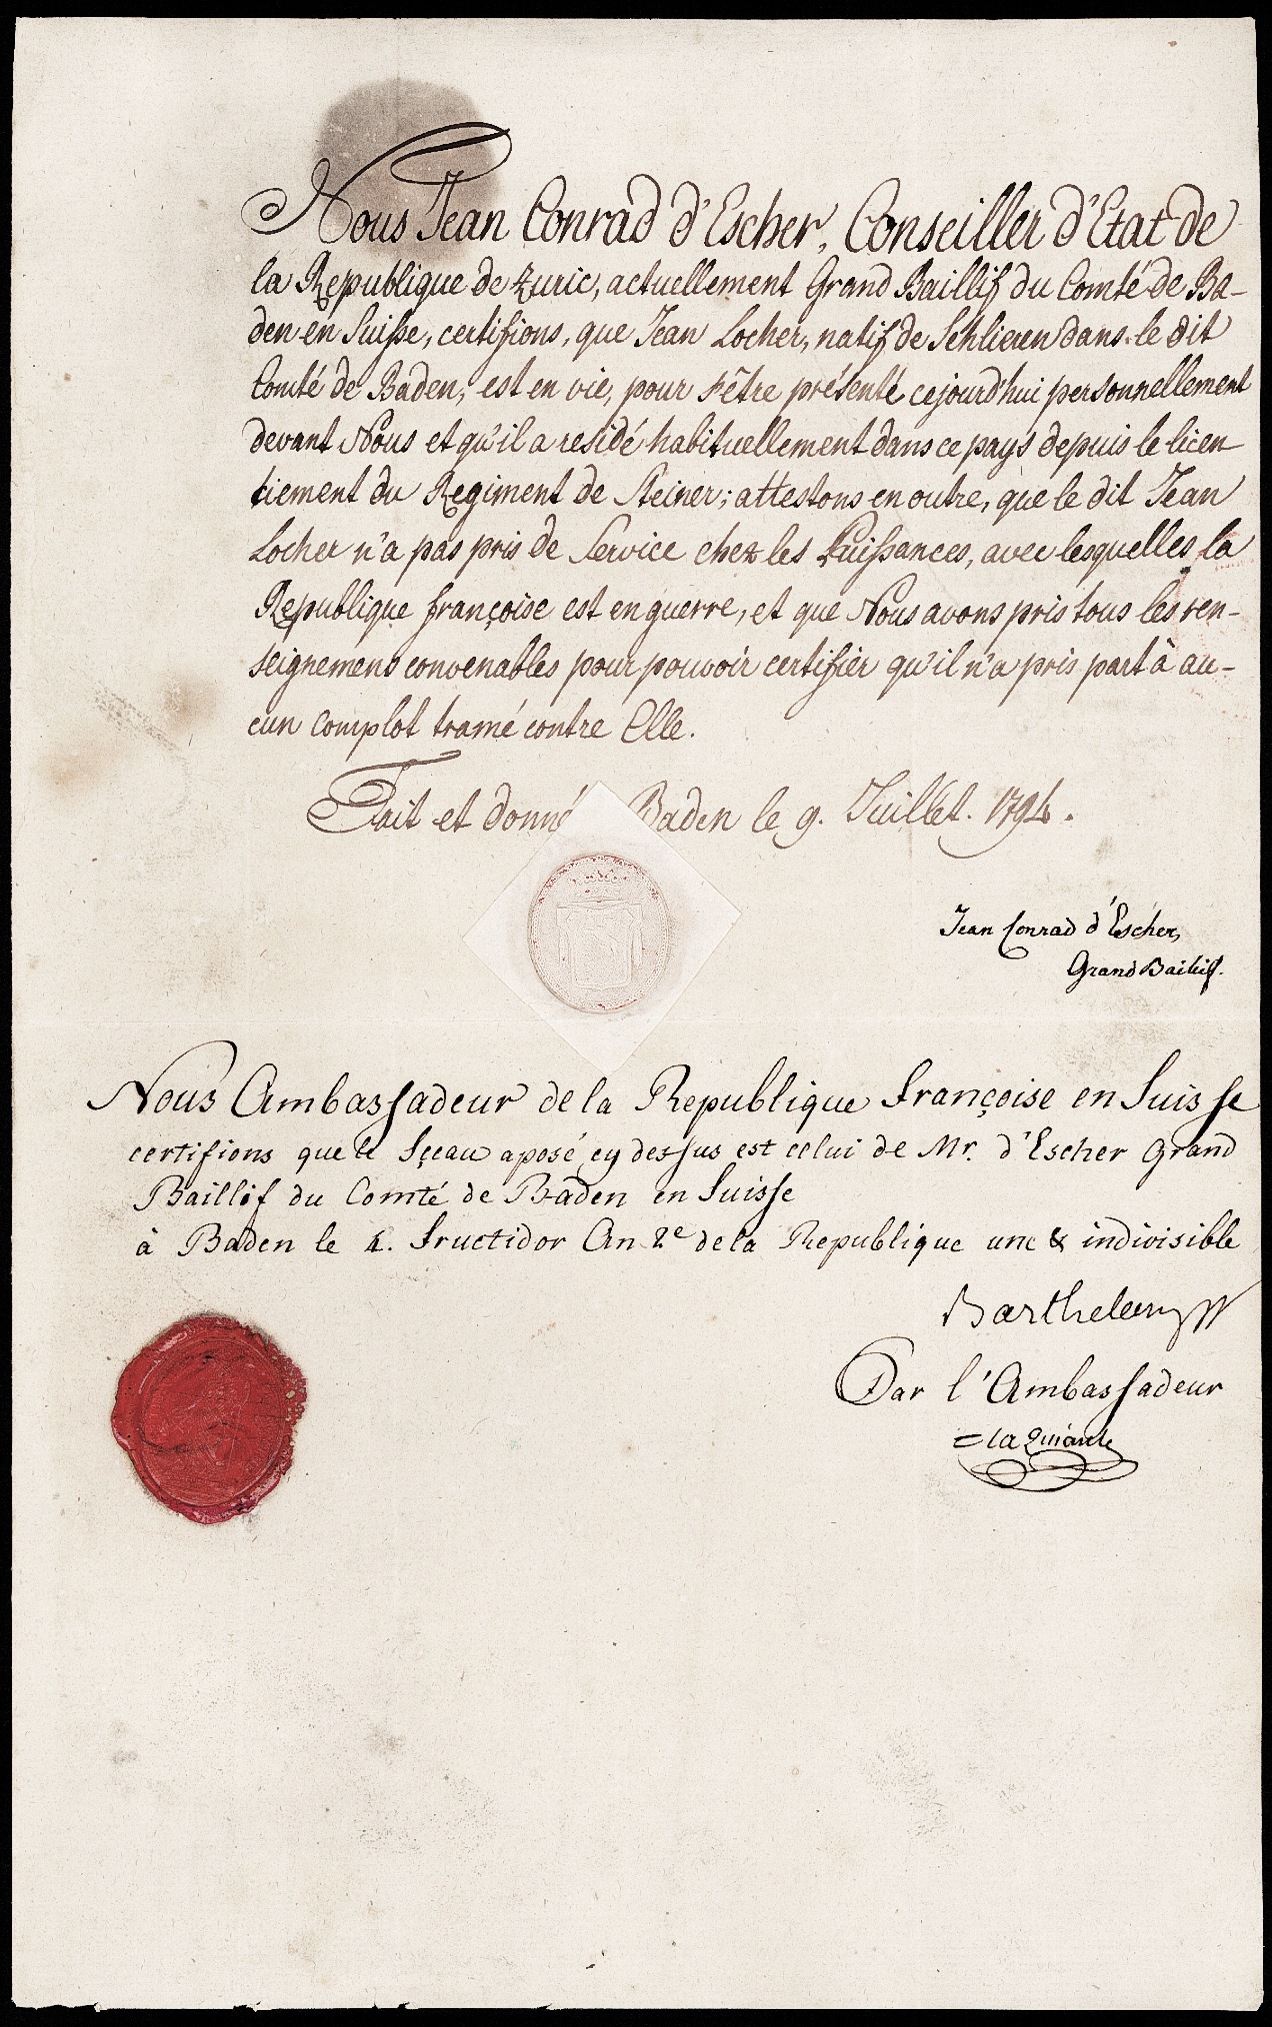 Nous Jean Conrad d'Escher, Conseiller d'Etat de
la Republique de Zuric, actuellement Grand Baillif du Comté de Ba-
den en Suisse, certifions, que Jean Locher, natif de Schlieren dans le dit
Comté de Baden, est en vie, pour s'être présenté cejourd'hui personnellement
devant Nous et qu'il a residé habituellement dans ce pays depuis le licen-
tiement du Regiment de Steiner; attestons en outre, que le dit Jean
Locher n'a pas pris de Service chez les Puissances, avec lesquelles la
Republique françoise est en guerre, et que Nous avons pris tous les ren-
seignemens convenables pour pouvoir certifier qu'il n'a pris part à au-
cun complot tramé contre Elle.
Fait et donné Baden le 9. Juillet. 1794.
Jean Conrad d'Escher,
Grand Baillif.
Nous Ambassadeur de la Republique Françoise en Suisse
certifions que le Sçeau aposé cy dessus est celui de Mr. d'Escher Grand
Baillif du Comté de Baden en Suisse
à Baden le 4. Fructidor An 2e de la Republique une & indivisible
Barthelemy
Par l'Ambassadeur